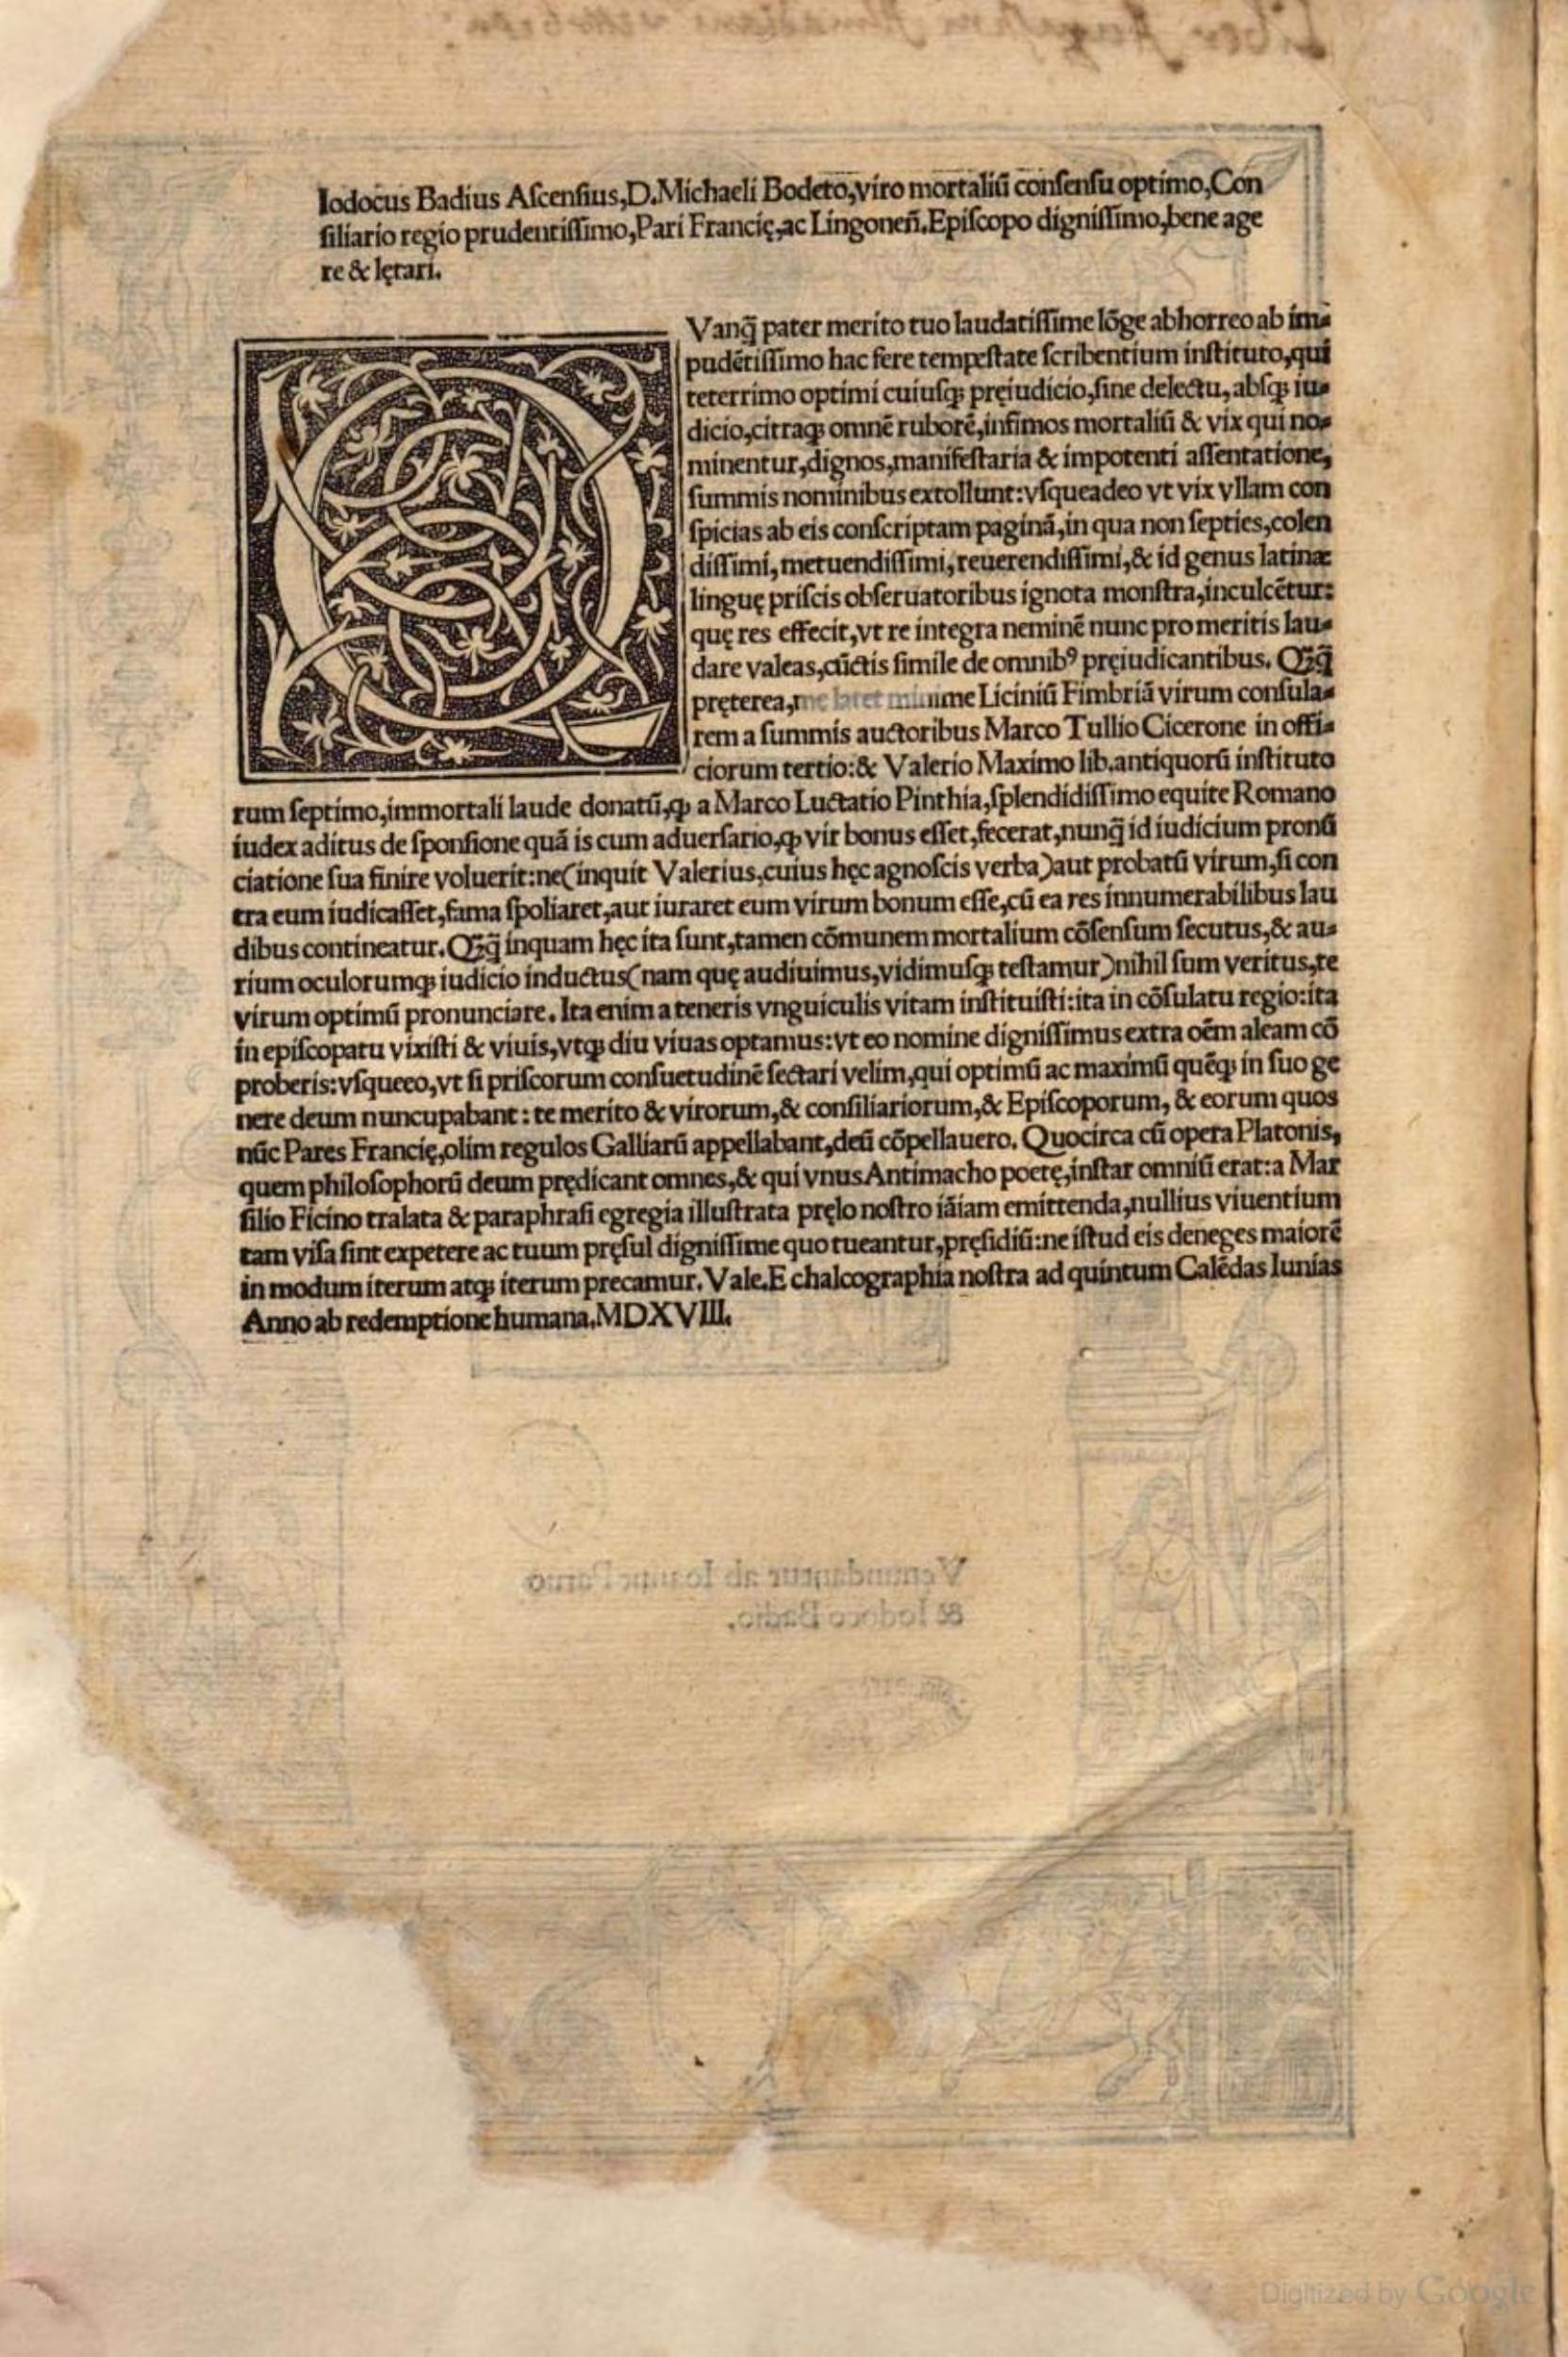 Iodocus Badius Aſcenſius,D.Michaeli Bodeto,viro mortaliū conſenſu optimo,Con
ſiliario regio prudentiſſimo,Pari Francię,ac Lingoneñ.Epiſcopo digniſſimo,bene age
re & lętari.
QVanq̃ pater merito tuo laudatiſſime lōge abhorreo ab im-
pudētiſſimo hac fere tempeſtate ſcribentium inſtituto,qui
teterrimo optimi cuiuſqꝫ pręiudicio,ſine delectu,abſqꝫ iu-
dicio,citraqꝫ omnē ruborē,infimos mortaliū & vix qui no-
minentur,dignos,manifeſtaria & impotenti aſſentatione,
ſummis nominibus extollunt:vſqueadeo vt vix vllam con
ſpicias ab eis conſcriptam paginā,in qua non ſepties,colen
diſſimi,metuendiſſimi,reuerendiſſimi,& id genus latinæ
linguę priſcis obſeruatoribus ignota monſtra,inculcētur:
quę res effecit,vt re integra neminē nunc pro meritis lau-
dare valeas,cūctis ſimile de omnibꝰ pręiudicantibus. Qꝫq̃
pręterea,me latet minime Liciniū Fimbriā virum conſula-
rem a ſummis auctoribus Marco Tullio Cicerone in offi-
ciorum tertio:& Valerio Maximo lib.antiquorū inſtituto
rum ſeptimo,immortali laude donatū,ꝙ a Marco Luctatio Pinthia,ſplendidiſſimo equite Romano
iudex aditus de ſponſione quā is cum aduerſario,ꝙ vir bonus eſſet,fecerat,nunq̃ id iudicium pronū
ciatione ſua finire voluerit:ne(inquit Valerius,cuius hęc agnoſcis verba)aut probatū virum,ſi con
tra eum iudicaſſet,fama ſpoliaret,aut iuraret eum virum bonum eſſe,cū ea res innumerabilibus lau
dibus contineatur. Qꝫq̃ inquam hęc ita ſunt,tamen cōmunem mortalium cōſenſum ſecutus,& au-
rium oculorumqꝫ iudicio inductus(nam quę audiuimus,vidimuſqꝫ teſtamur)nihil ſum veritus,te
virum optimū pronunciare. Ita enim a teneris vnguiculis vitam inſtituiſti:ita in cōſulatu regio:ita
in epiſcopatu vixiſti & viuis,vtqꝫ diu viuas optamus:vt eo nomine digniſſimus extra oēm aleam cō
proberis:vſqueeo,vt ſi priſcorum conſuetudinē ſectari velim,qui optimū ac maximū quēqꝫ in ſuo ge
nere deum nuncupabant: te merito & virorum,& conſiliariorum,& Epiſcoporum, & eorum quos
nūc Pares Francię,olim regulos Galliarū appellabant,deū cōpellauero. Quocirca cū opera Platonis,
quem philoſophorū deum prędicant omnes,& qui vnus Antimacho poetę,inſtar omniū erat:a Mar
ſilio Ficino tralata & paraphraſi egregia illuſtrata pręlo noſtro iāiam emittenda,nullius viuentium
tam viſa ſint expetere ac tuum pręſul digniſſime quo tueantur,pręſidiū:ne iſtud eis deneges maiorē
in modum iterum atqꝫ iterum precamur. Vale.E chalcographia noſtra ad quintum Calēdas Iunias
Anno ab redemptione humana.MDXVIII.
Venundantur ab Ioanne Paruo
& Iodoco Badio.
Digitized by Google